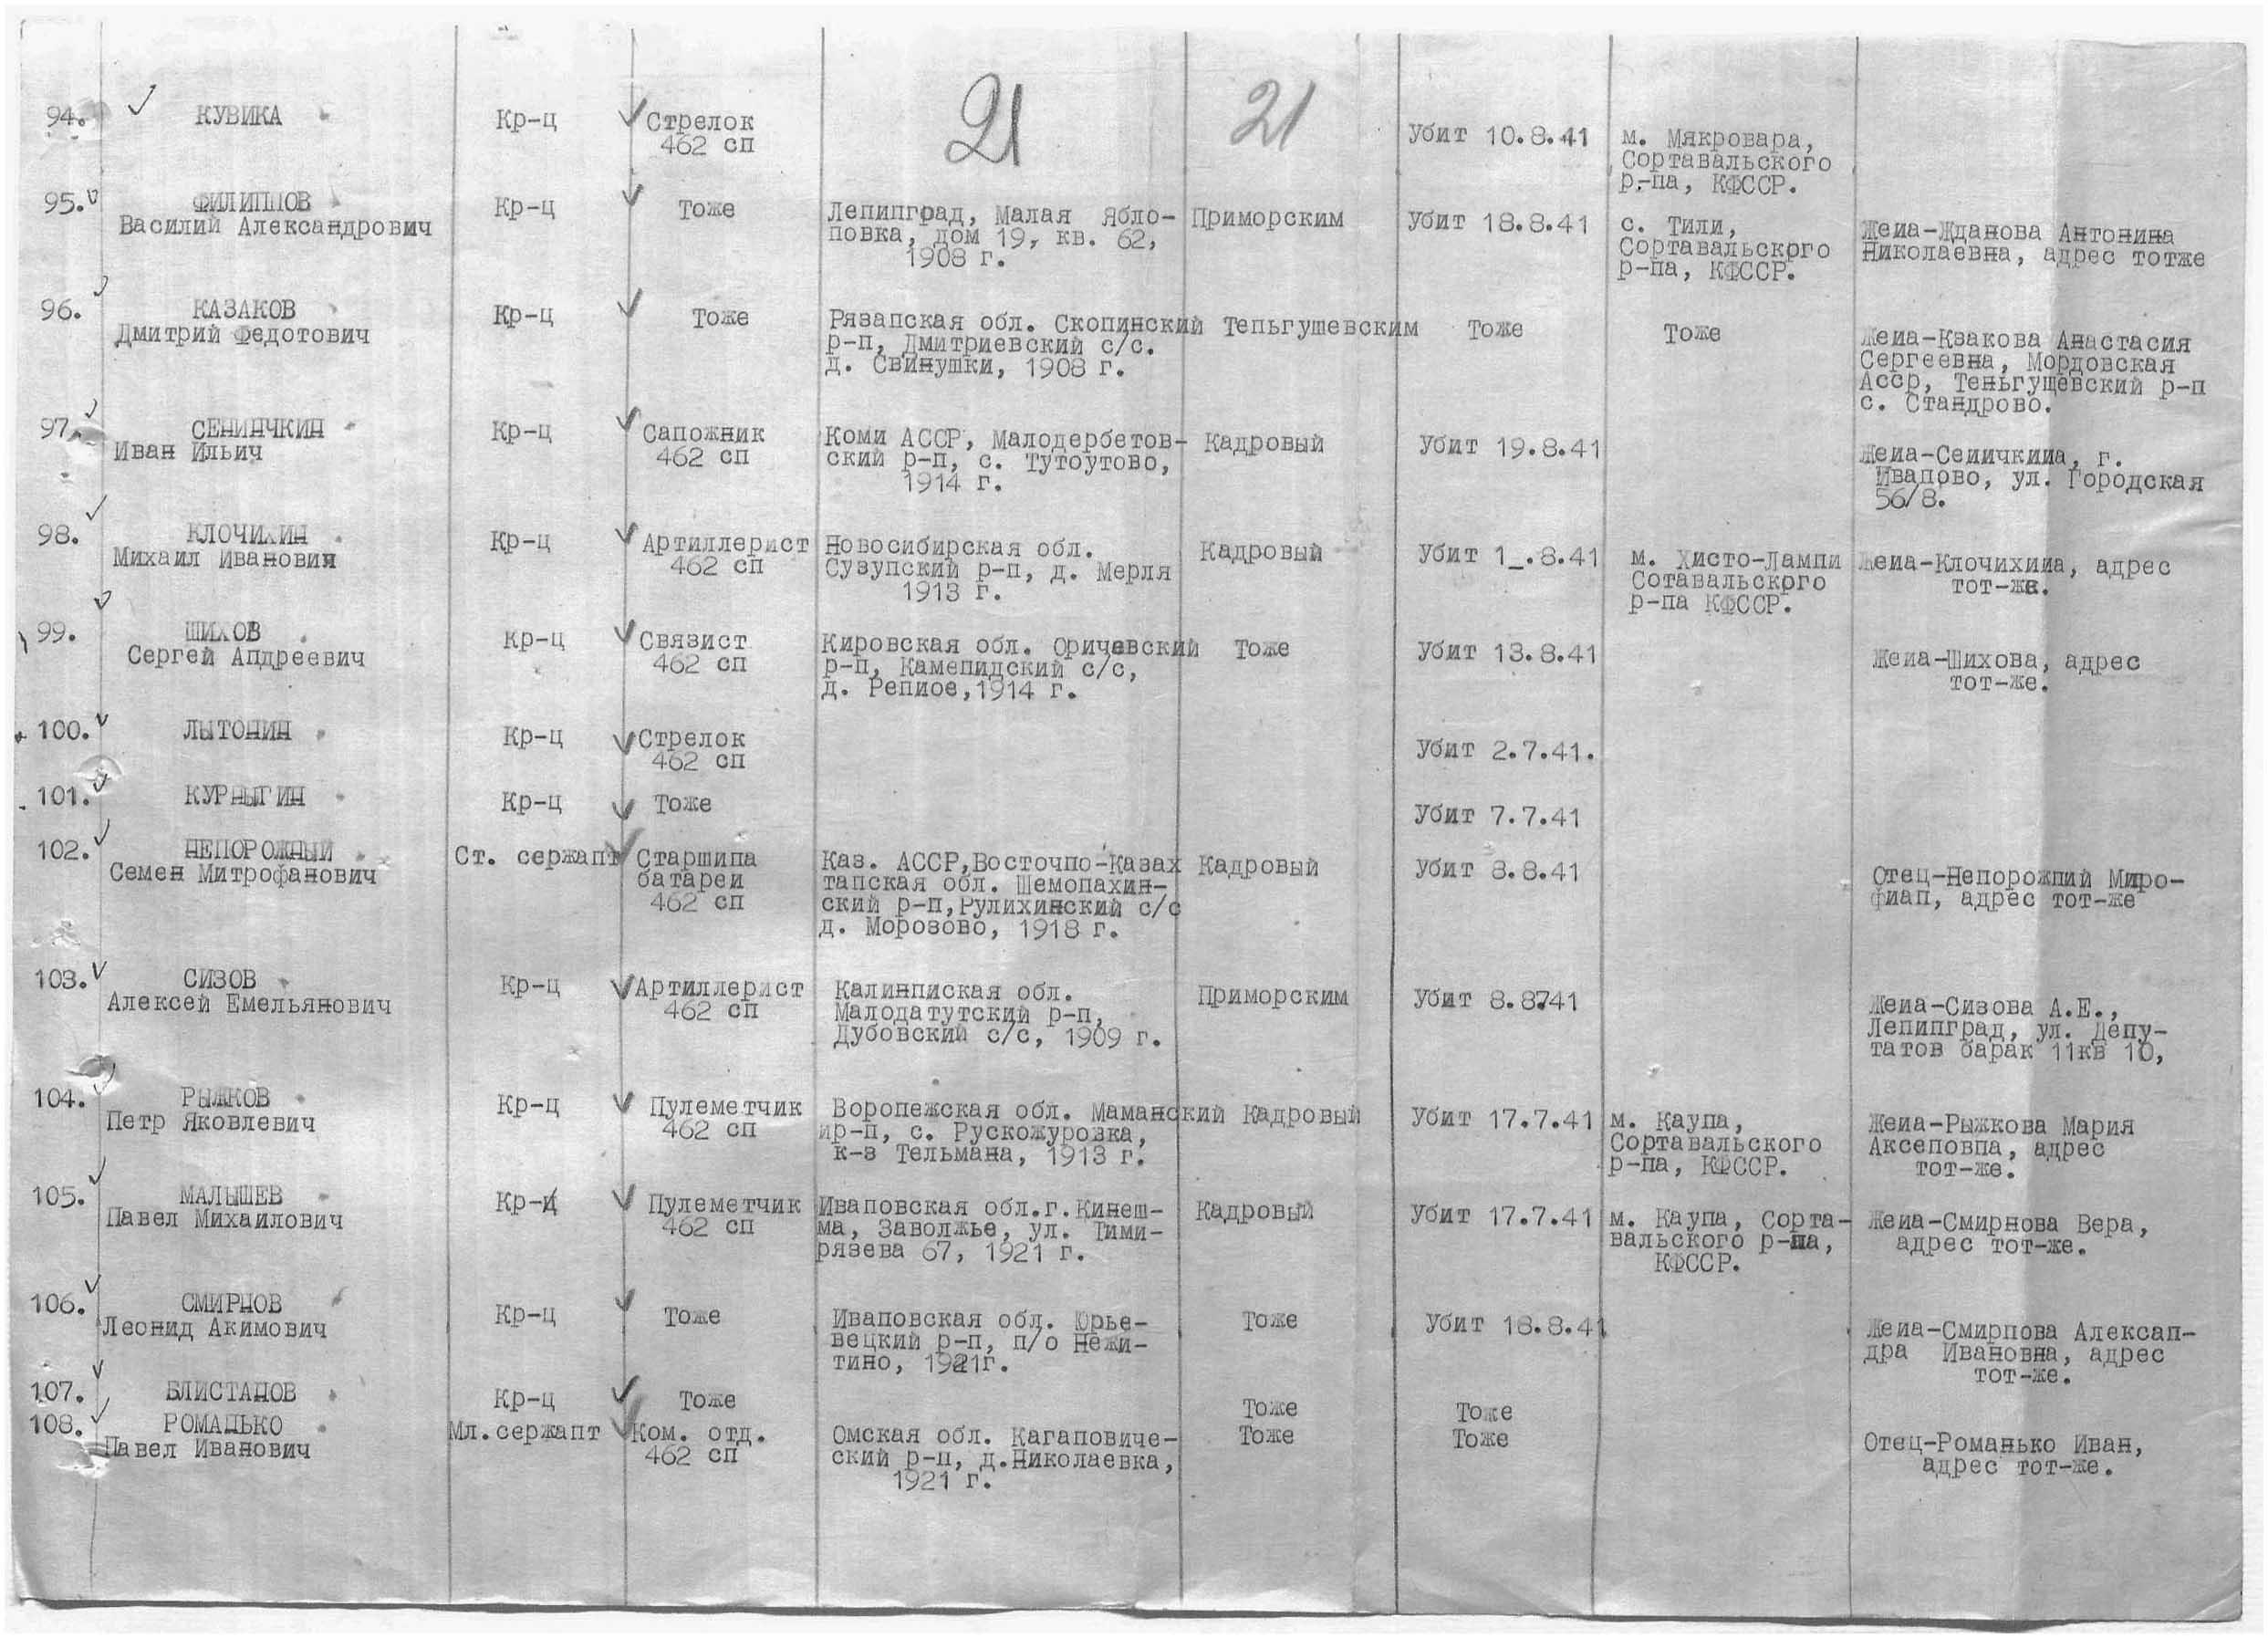 21 21
94. КУВИКА Кр-ц Стрелок Убит 10.8.41 м. Мякровара,
462 сп Сортавальского
р-па, КФССР.
95. ФИЛИППОВ Кр-ц Тоже Лепипград, Малая Ябло- Приморским Убит 18.8.41 с. Тили, Жеиа-Жданова Антонина
Василий Александрович повка, дом 19, кв. 62, Сортавальского Николаевна, адрес тотже
1908 г. р-па, КФССР.
96. КАЗАКОВ Кр-ц Тоже Рязапская обл. Скопинский Тепьгушевским Тоже Тоже Жеиа-Квакова Анастасия
Дмитрий Федотович р-п, Дмитриевский с/с. Сергеевна, Мордовская
д. Свинушки, 1908 г. Асср, Теньгущевский р-п
с. Стандрово.
97. СЕНИЧКИН Кр-ц Сапожник Коми АССР, Малодербетов- Кадровый Убит 19.8.41 Жеиа-Сеиичкииа, г.
Иван Ильич 462 сп ский р-п, с. Тутоутово, Ивапово, ул. Городская
1914 г. 56/8.
98. КЛОЧИХИН Кр-ц Артиллерист Новосибирская обл. Кадровый Убит 1_.8.41 м. Хисто-Лампи Жеиа-Клочихииа, адрес
Михаил Иванович 462 сп Сузупский р-п, д. Мерля Сотавальского тот-же.
1913 г. р-па КФССР.
99. ШИХОВ Кр-ц Связист Кировская обл. Оричевский Тоже Убит 13.8.41 Жеиа-Шихова, адрес
Сергей Апдреевич 462 сп р-п, Камепидский с/с, тот-же.
д. Репиое,1914 г.
100. ЛЫТОНИН Кр-ц Стрелок Убит 2.7.41.
462 сп
101. КУРНЫГИН Кр-ц Тоже Убит 7.7.41
102. НЕПОРОЖНЫЙ Ст. сержапт Старшипа Каз. АССР,Восточпо-Казах Кадровый Убит 8.8.41 Отец-Непорожпий Миро-
Семен Митрофанович батареи тапская обл. Шемопахин- фиап, адрес тот-же
462 сп ский р-п,Рулихинский с/с
д. Морозово, 1918 г.
103. СИЗОВ Кр-ц Артиллерист Калинпиская обл. Приморским Убит 8.8.41 Жеиа-Сизова А.Е.,
Алексей Емельянович 462 сп Малодатутский р-п, Лепипград, ул. Депу-
Дубовский с/с, 1909 г. татов барак 11кв 10,
104. РЫЖКОВ Кр-ц Пулеметчик Воропежская обл. Маманский Кадровый Убит 17.7.41 м. Каупа, Жеиа-Рыжкова Мария
Петр Яковлевич 462 сп р-п, с. Рускожуровка, Сортавальского Аксеповпа, адрес
к-з Тельмана, 1913 г. р-па, КФССР. тот-же.
105. МАЛЫШЕВ Кр-ц Пулеметчик Иваповская обл.г.Кинеш- Кадровый Убит 17.7.41 м. Каупа, Сорта- Жеиа-Смирнова Вера,
Павел Михаилович 462 сп ма, Заволжье, ул. Тими- вальского р-па, адрес тот-же.
рязева 67, 1921 г. КФССР.
106. СМИРНОВ Кр-ц Тоже Иваповская обл. Юрье- Тоже Убит 18.8.41 Жеиа-Смирпова Алексап-
Леонид Акимович вецкий р-п, п/о Нежи- дра Ивановна, адрес
тино, 1921г. тот-же.
107. БЛИСТАНОВ Кр-ц Тоже Тоже Тоже
108. РОМАНЬКО Мл.сержапт Ком. отд. Омская обл. Кагаповиче- Тоже Тоже Отец-Романько Иван,
Павел Иванович 462 сп ский р-п, д.Николаевка, адрес тот-же.
1921 г.